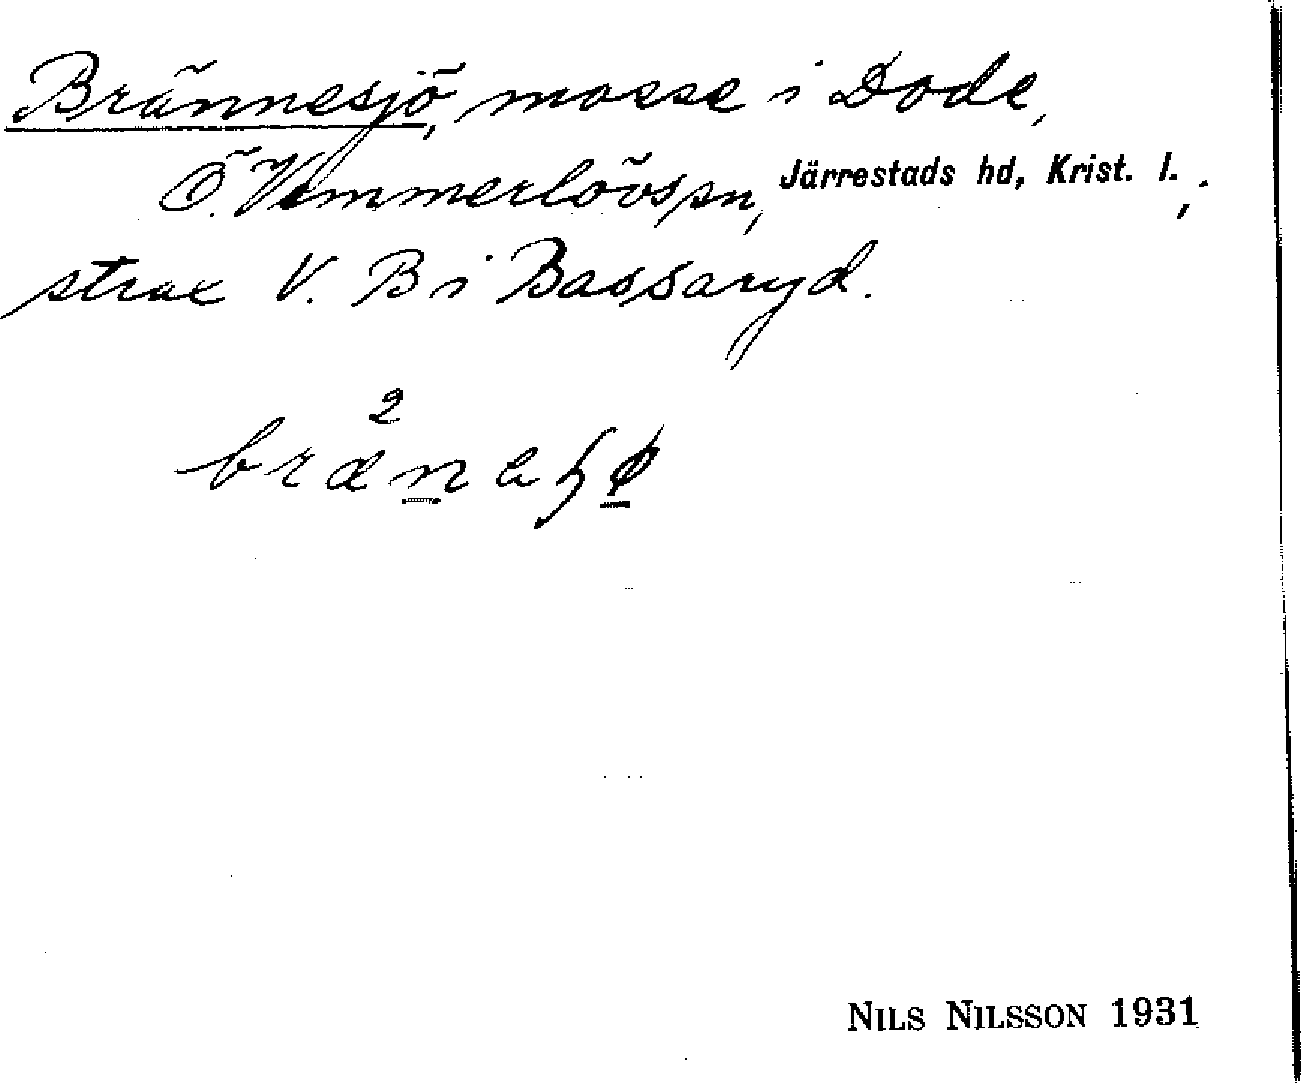 Brännesjö, mosse i Dode,
Ö. Vemmerlövs sn, Järrestads hd, Krist. l.,
strax V. B i Bassaryd.
2
brænaʃø
NILS NILSSON 1931